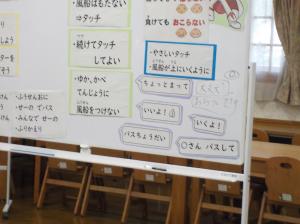 ・風船はもたない
⇒タッチ
・続けてタッチ
してよい
・ゆか、かべ
てんじょうに
風船をつけない
負けても おこらない
・やさしいタッチ
・風船が上にいくように
ちょっとまって
いいよ!
いくよ!
パスちょうだい
○さん パスして
・ふうせんおに
・せーの でパス
・みんなで せーの
・ふりかえり